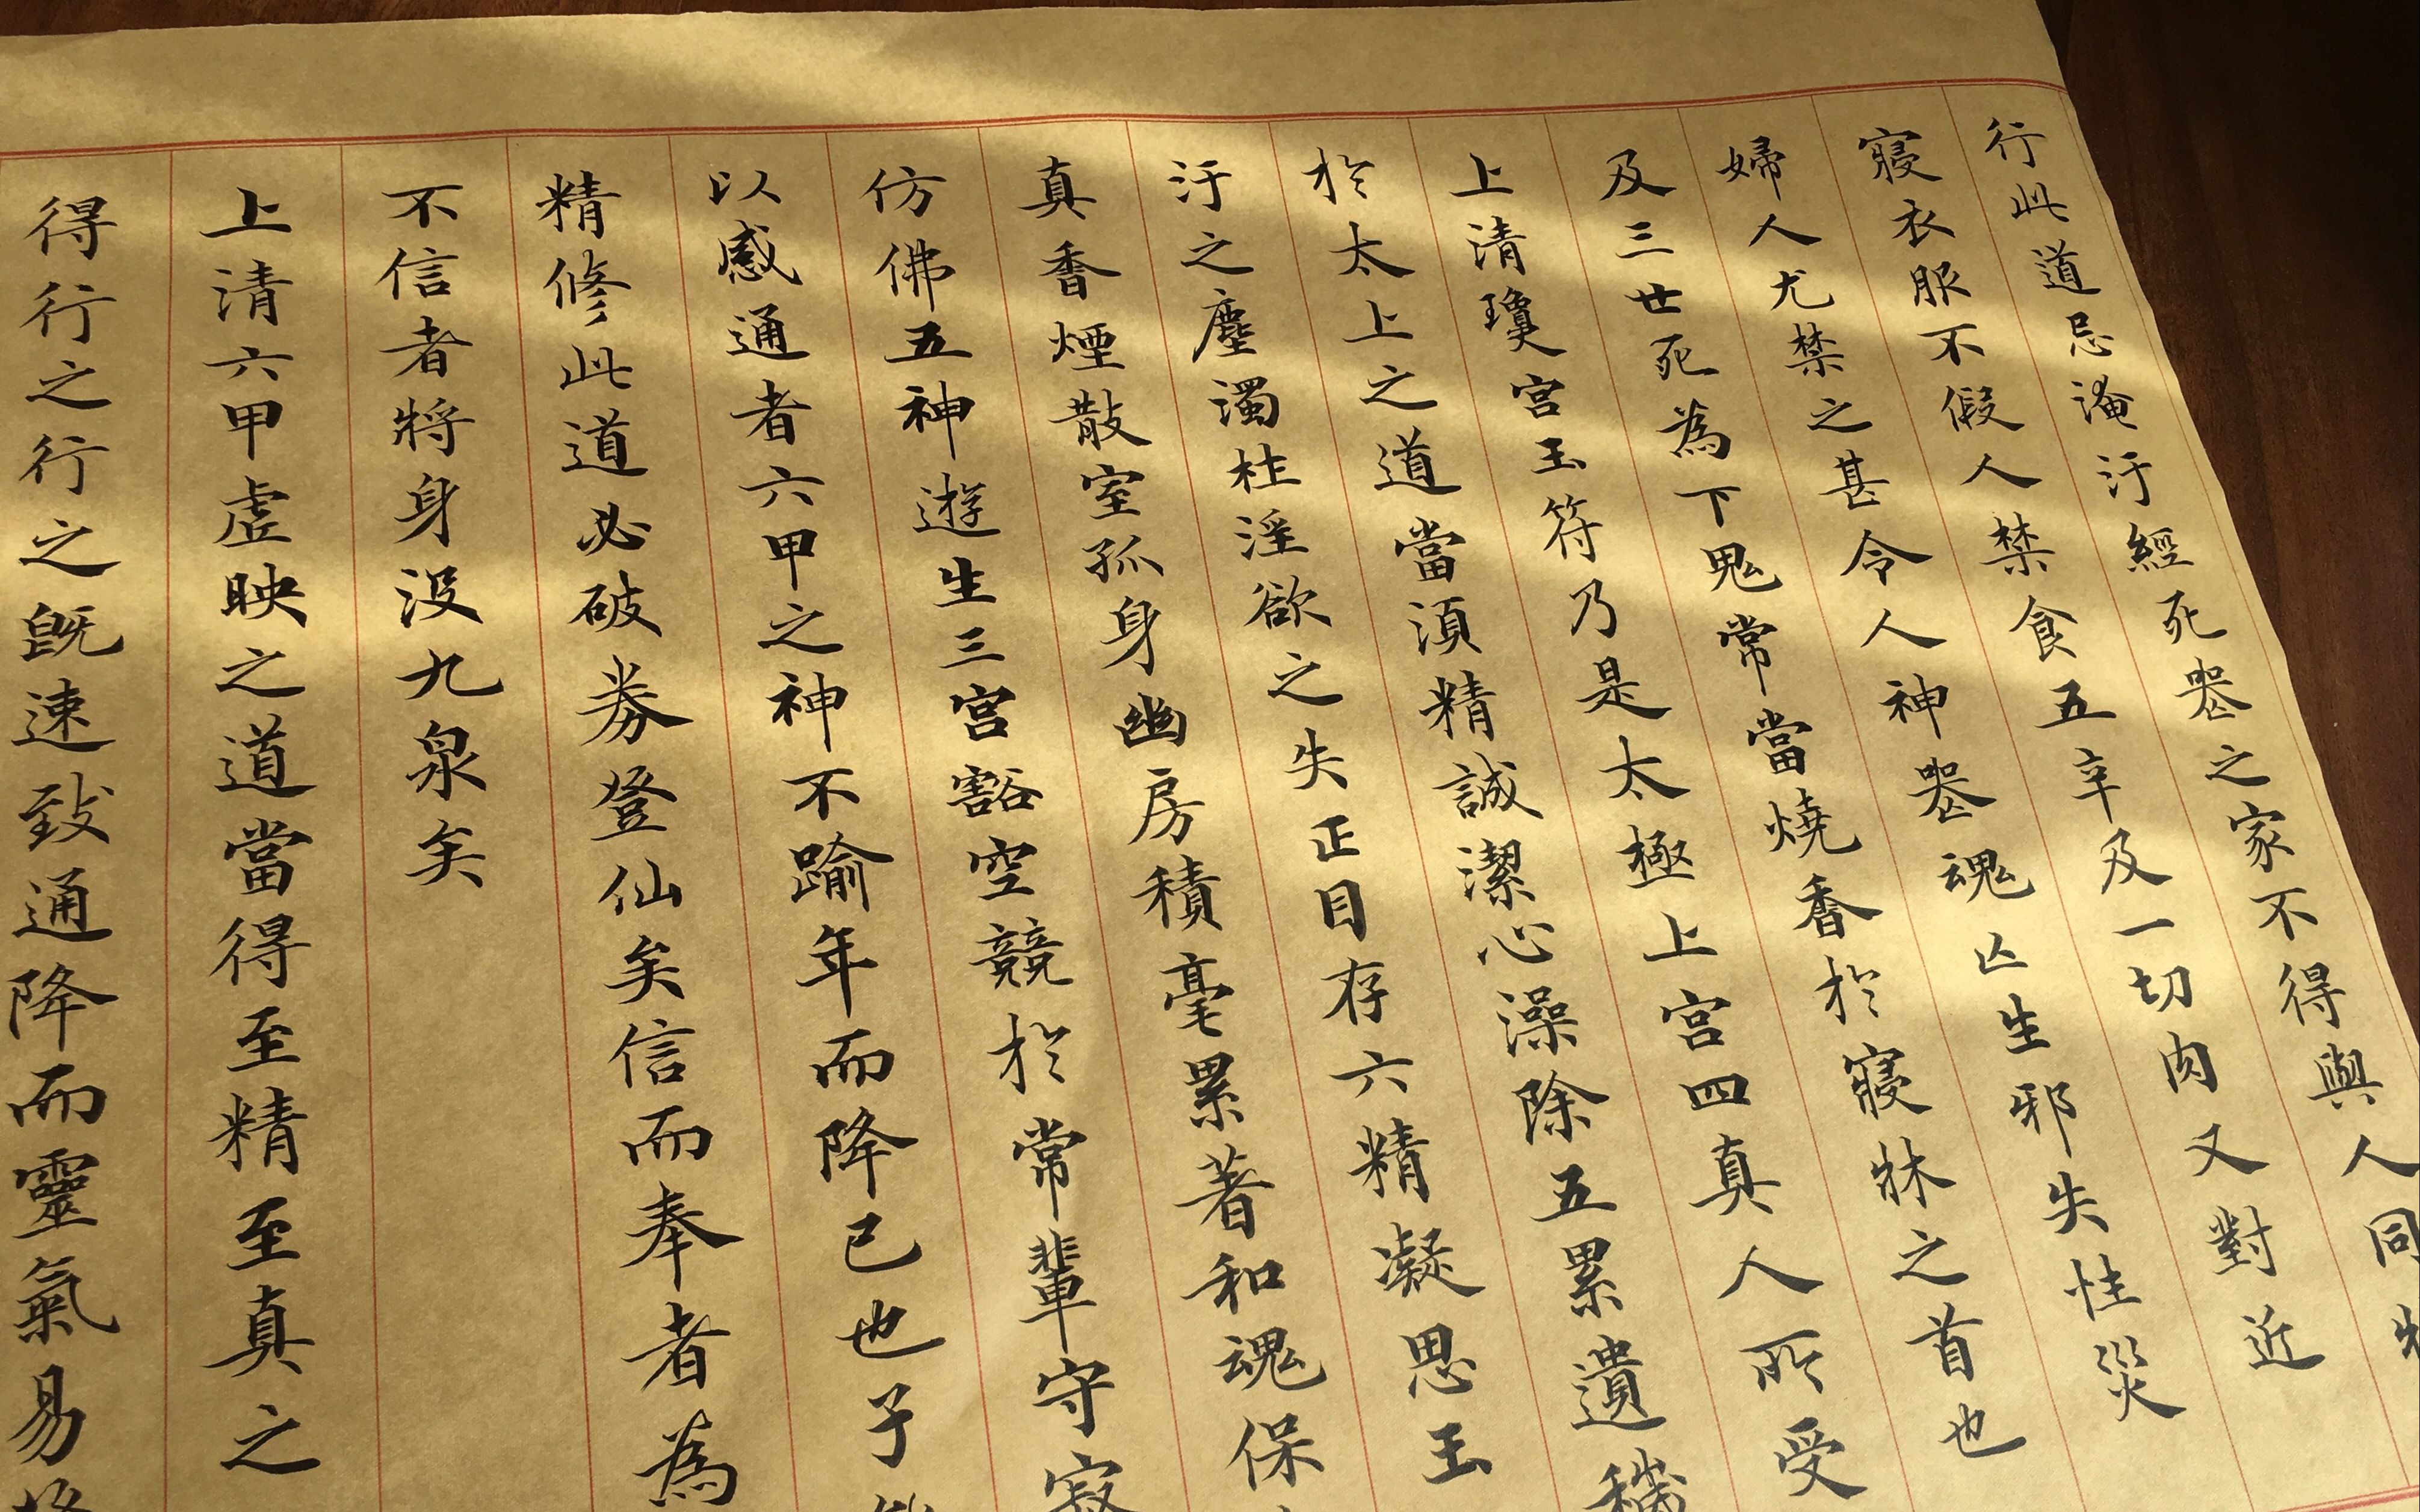 行此道忌淹汙經死喪之家不得與人同
寢衣服不假人禁食五辛及一切肉又對近
婦人尤禁之甚令人神喪魂亡生邪失性災
及三世死為下鬼常當燒香於寢牀之首也
上清瓊宮玉符乃是太極上宮四真人所受
於太上之道當須精誠潔心澡除五累遺穢
汙之塵濁杜淫欲之失正目存六精凝思玉
真香煙散室孤身幽房積毫累著和魂保
仿佛五神遊生三宮豁空競於常輩守寂
以感通者六甲之神不踰年而降已也子
精修此道必破券登仙矣信而奉者為
不信者將身没九泉矣
上清六甲虛映之道當得至精至真之
得行之行之既速致通降而靈氣易